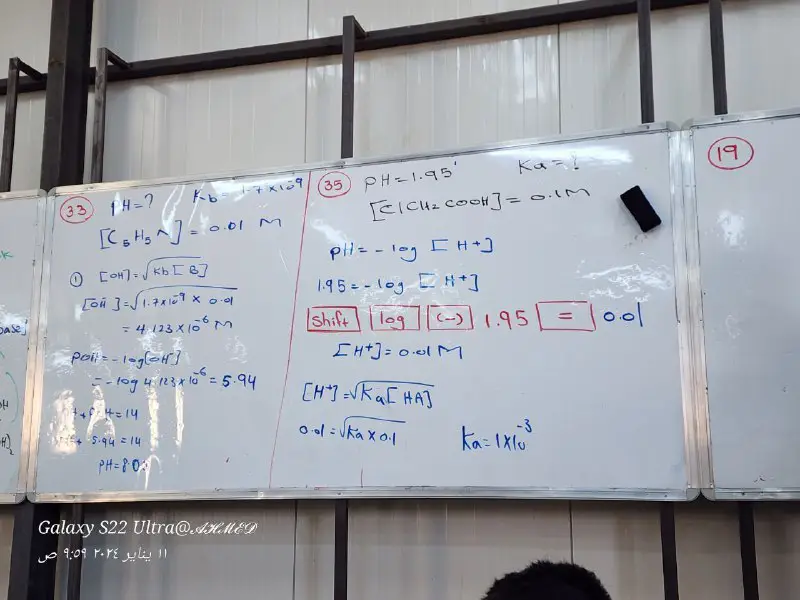 33
PH=? Kb = 1.7x10-9
[C5H5N] = 0.01 M
① [OH]=√Kb[B]
[OH]=√1.7x10-9 x 0.01
= 4.123x10-6 M
POH=-log[OH]
= -log 4.123x10-6 = 5.94
=14
5.94 =14
PH=8.0
35 PH=1.95 Ka=?
[ClCH2COOH]=0.1M
PH=-log [H+]
1.95=-log [H+]
Shift log (-) 1.95 = 0.01
[H+]=0.01M
[H+]=√Ka[HA]
0.01=√Ka x 0.1 Ka=1x10-3
19
base]
OH
Galaxy S22 Ultra@AHMED
١١ يناير ٢٠٢٤ ٩:٥٩ ص